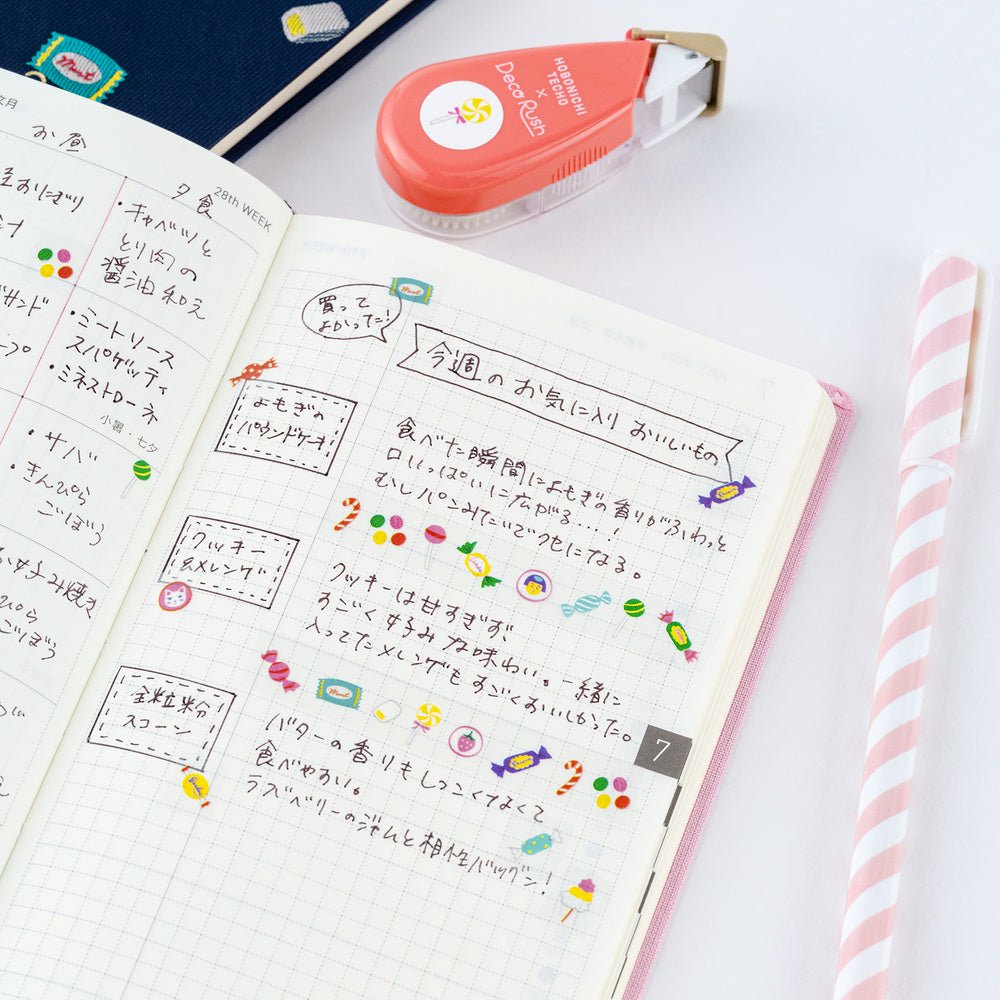 Mint
HOBONICHI
TECHO
×
Deco Rush
文月
28th WEEK
お昼
夕食
おにぎり
・キャベツと
とり肉の
醤油和え
サンド
・ミートソース
スパゲッティ
・ミネストローネ
小暑・七夕
・サバ
・きんぴら
ごぼう
お好み焼き
ごぼう
買って
よかった!
Mint
今週のお気に入りおいしいもの
よもぎの
パウンドケーキ
食べた瞬間によもぎの香りがふわっと
口いっぱいに広がる…!
むしパンみたいでクセになる。
クッキー
&メレンゲ
クッキーは甘すぎず、
すごく好みな味わい。一緒に
入ってたメレンゲもすごくおいしかった。
Mint
全粒粉
スコーン
バターの香りもしつこくなくて
食べやすい。
ラズベリーのジャムと相性バツグン!
7